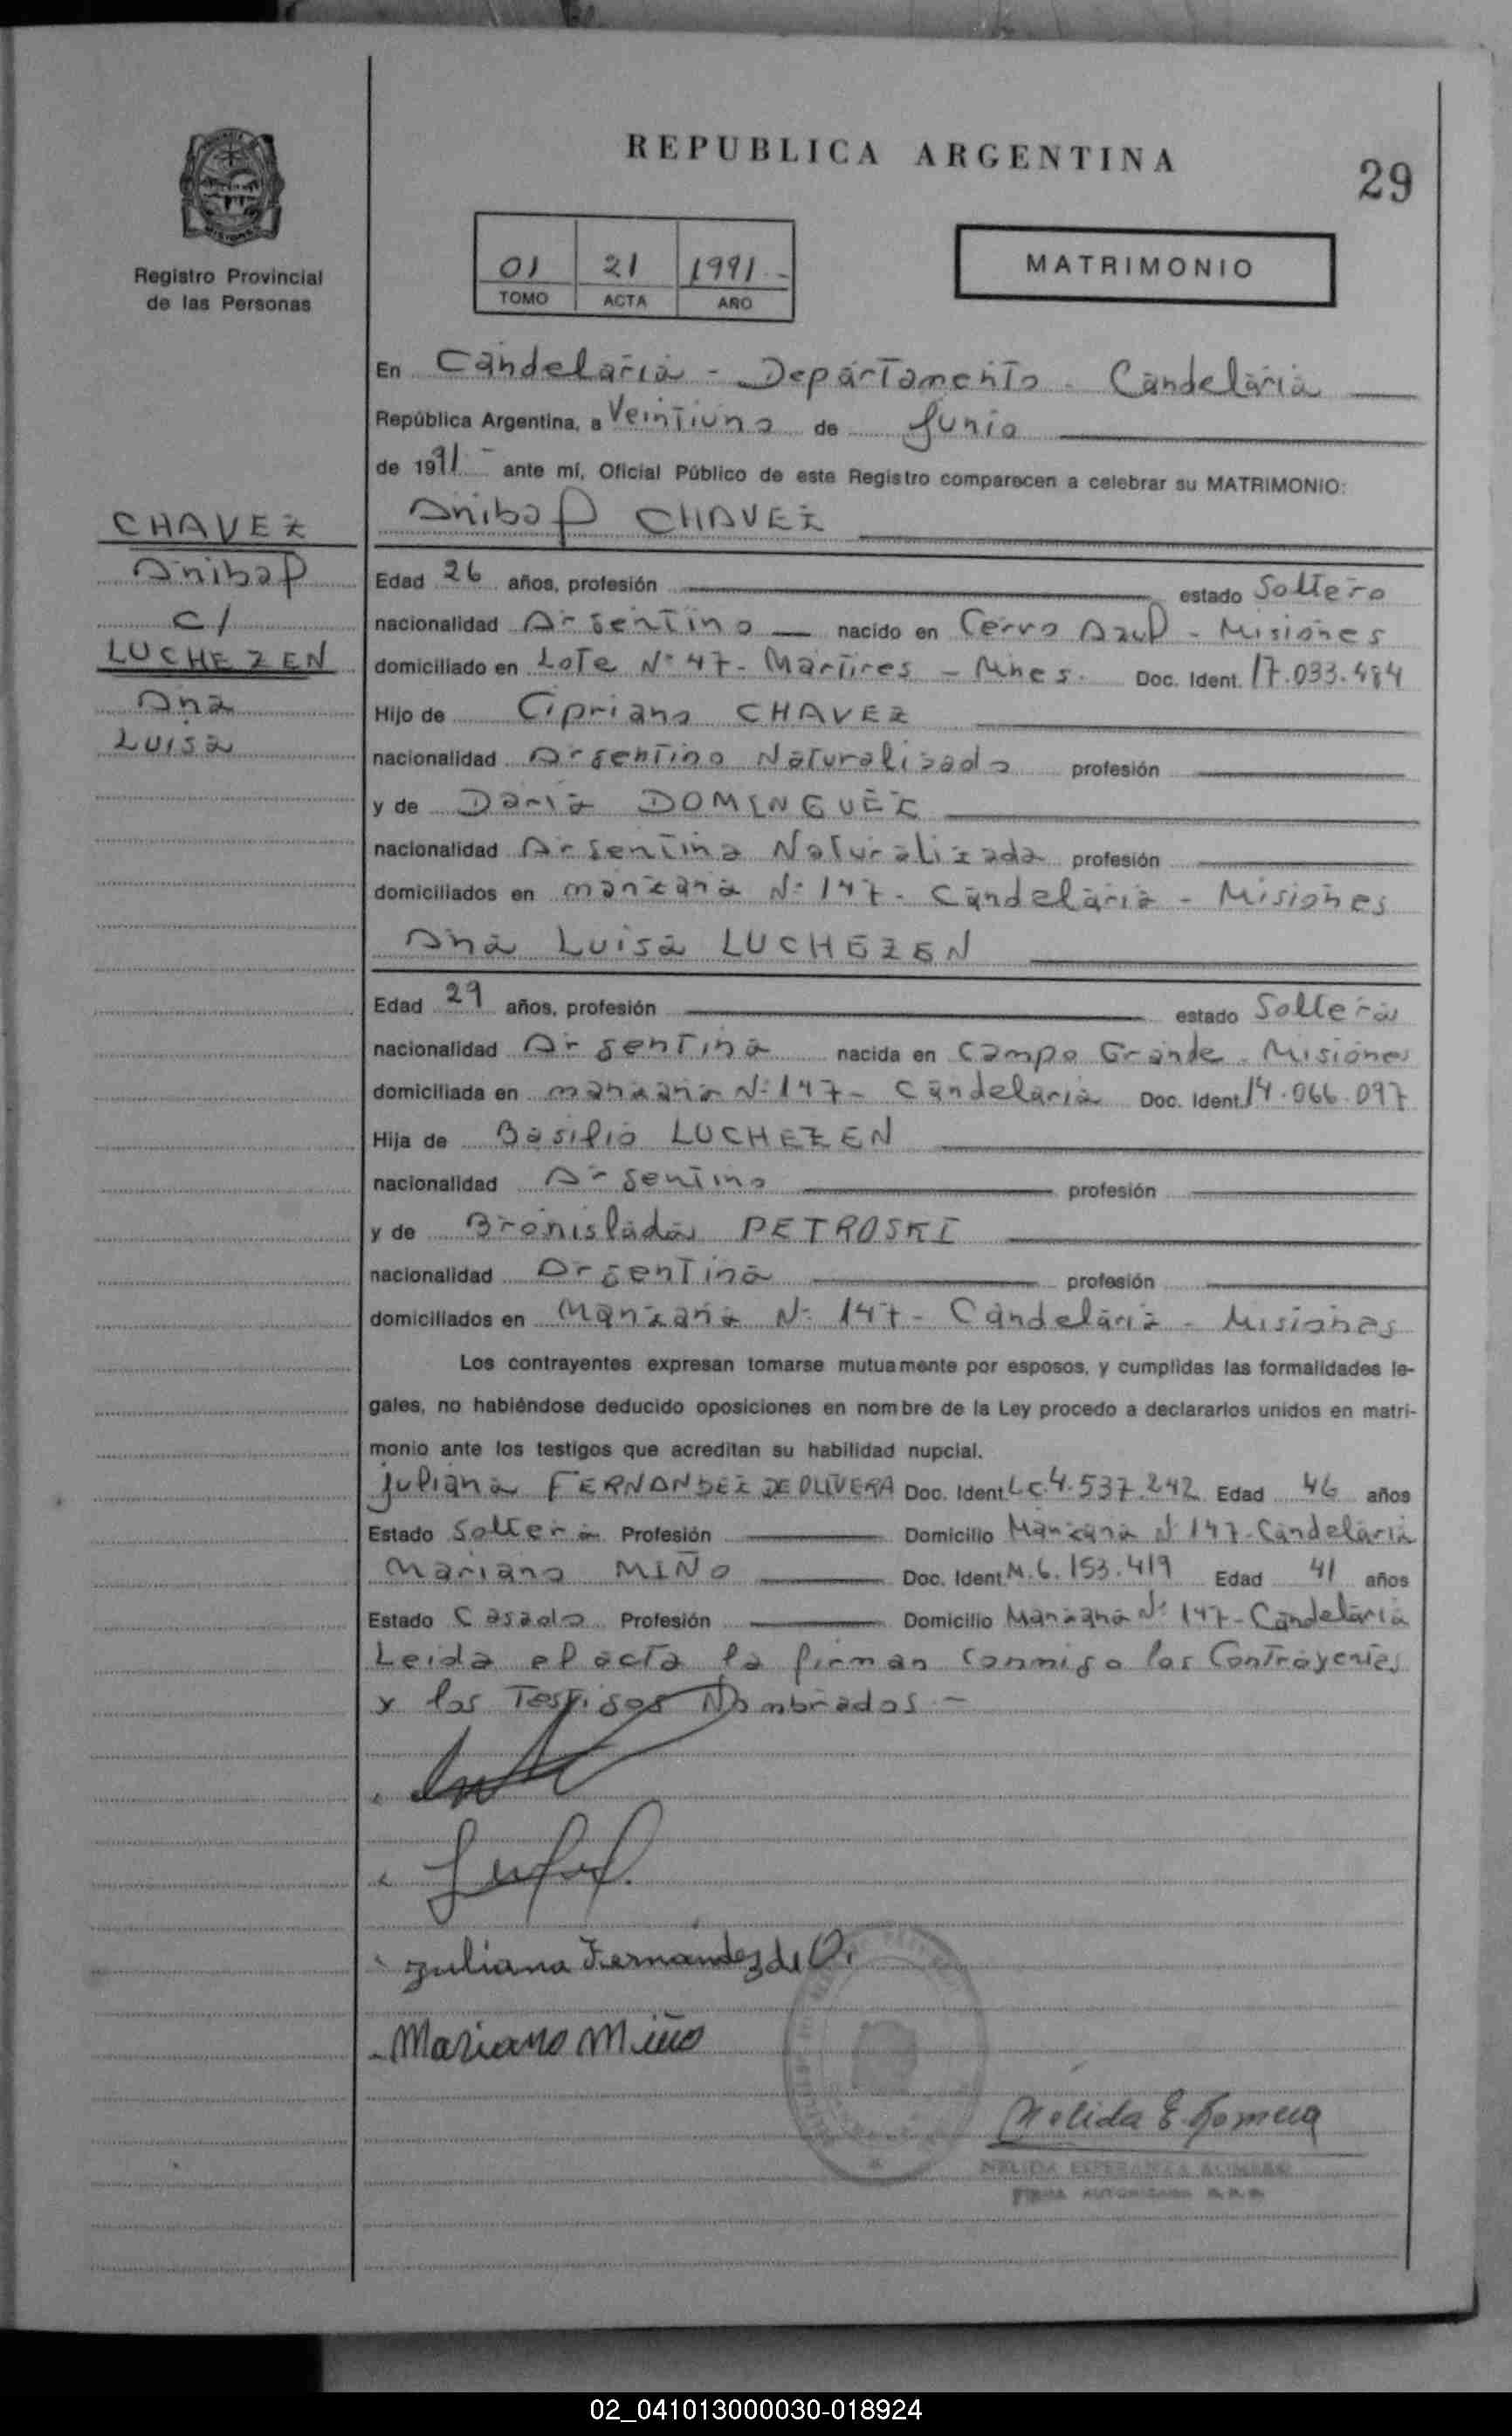 REPUBLICA ARGENTINA
29
Registro Provincial
de las Personas
01 21 1991-
TOMO ACTA AÑO
MATRIMONIO
En Candelaria - Departamento - Candelaria
República Argentina, a Veintiuno de Junio
de 1991 - ante mí, Oficial Público de este Registro comparecen a celebrar su MATRIMONIO:
Anibal CHAVEZ
CHAVEZ
Anibal
C/
LUCHEZEN
Ana
Luisa
Edad 26 años, profesión estado Soltero
nacionalidad Argentino nacido en Cerro Azul - Misiones
domiciliado en Lote Nº 47 - Martires - Mnes. Doc. Ident. 17.033.484
Hijo de Cipriano CHAVEZ
nacionalidad Argentino Naturalizado profesión
y de Daria DOMINGUEZ
nacionalidad Argentina Naturalizada profesión
domiciliados en manzana Nº 147 - Candelaria - Misiones
Ana Luisa LUCHEZEN
Edad 29 años, profesión estado Soltera
nacionalidad Argentina nacida en Campo Grande - Misiones
domiciliada en manzana Nº 147 - Candelaria Doc. Ident. 14.066.097
Hija de Basilio LUCHEZEN
nacionalidad Argentino profesión
y de Bronislada PETROSKI
nacionalidad Argentina profesión
domiciliados en Manzana Nº 147 - Candelaria - Misiones
Los contrayentes expresan tomarse mutuamente por esposos, y cumplidas las formalidades le-
gales, no habiéndose deducido oposiciones en nombre de la Ley procedo a declararlos unidos en matri-
monio ante los testigos que acreditan su habilidad nupcial.
Juliana FERNANDEZ DE OLIVERA Doc. Ident. LC 4.537.242 Edad 46 años
Estado Soltera Profesión Domicilio Manzana Nº 147 - Candelaria
Mariano MIÑO Doc. Ident. M. 6.153.419 Edad 41 años
Estado Casado Profesión Domicilio Manzana Nº 147 - Candelaria
Leida el acta la firman conmigo los Contrayentes
y los Testigos Nombrados -
Juliana Fernandez de O.
Mariano Miño
Nelida E. Romero
NELIDA ESPERANZA ROMERO
FIRMA AUTORIZADA
02_041013000030-018924